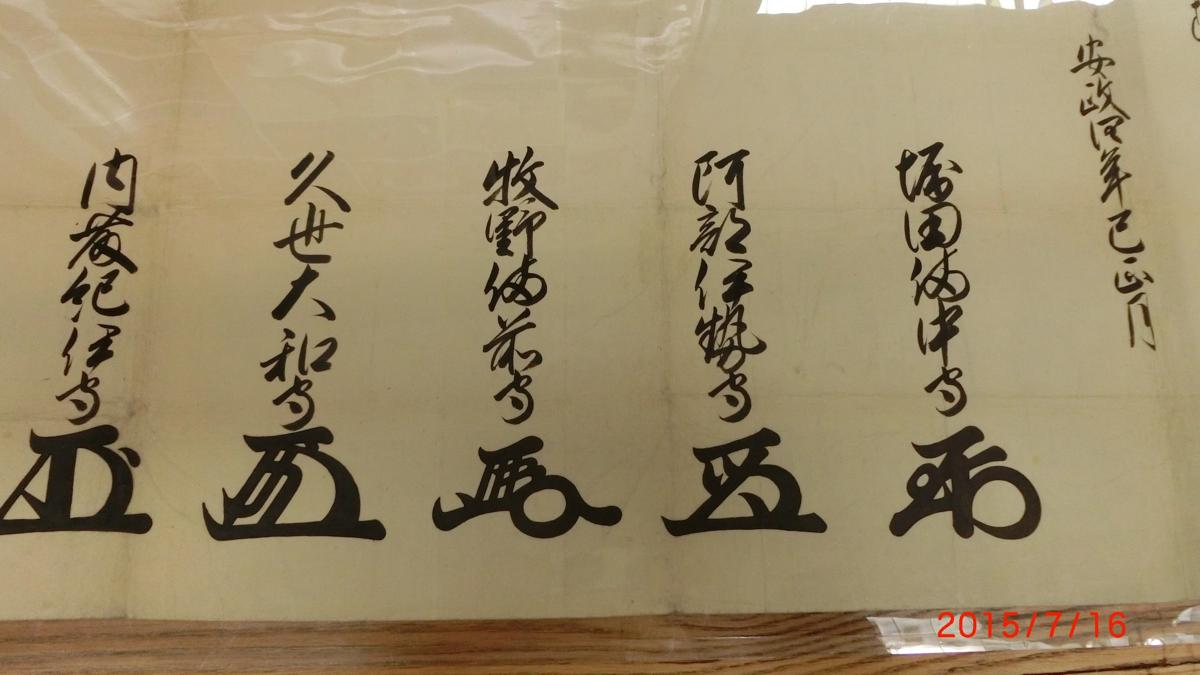 安政四年巳正月
堀田備中守
阿部伊勢守
牧野備前守
久世大和守
内藤紀伊守
2015/7/16